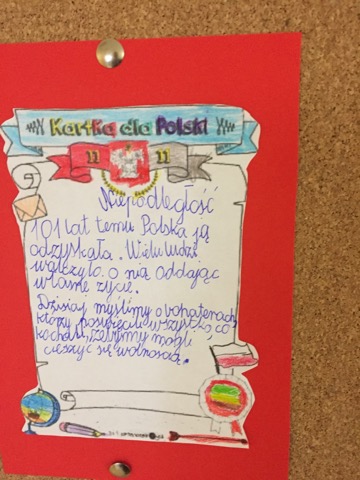 Kartka dla Polski
11 11
Niepodległość
101 lat temu Polska ją
odzyskała. Wielu ludzi
walczyło o nią oddając
własne życie.
Dzisiaj myślimy o bohaterach,
którzy poświęcili wszystko, co
kochali, żebyśmy mogli
cieszyć się wolnością.